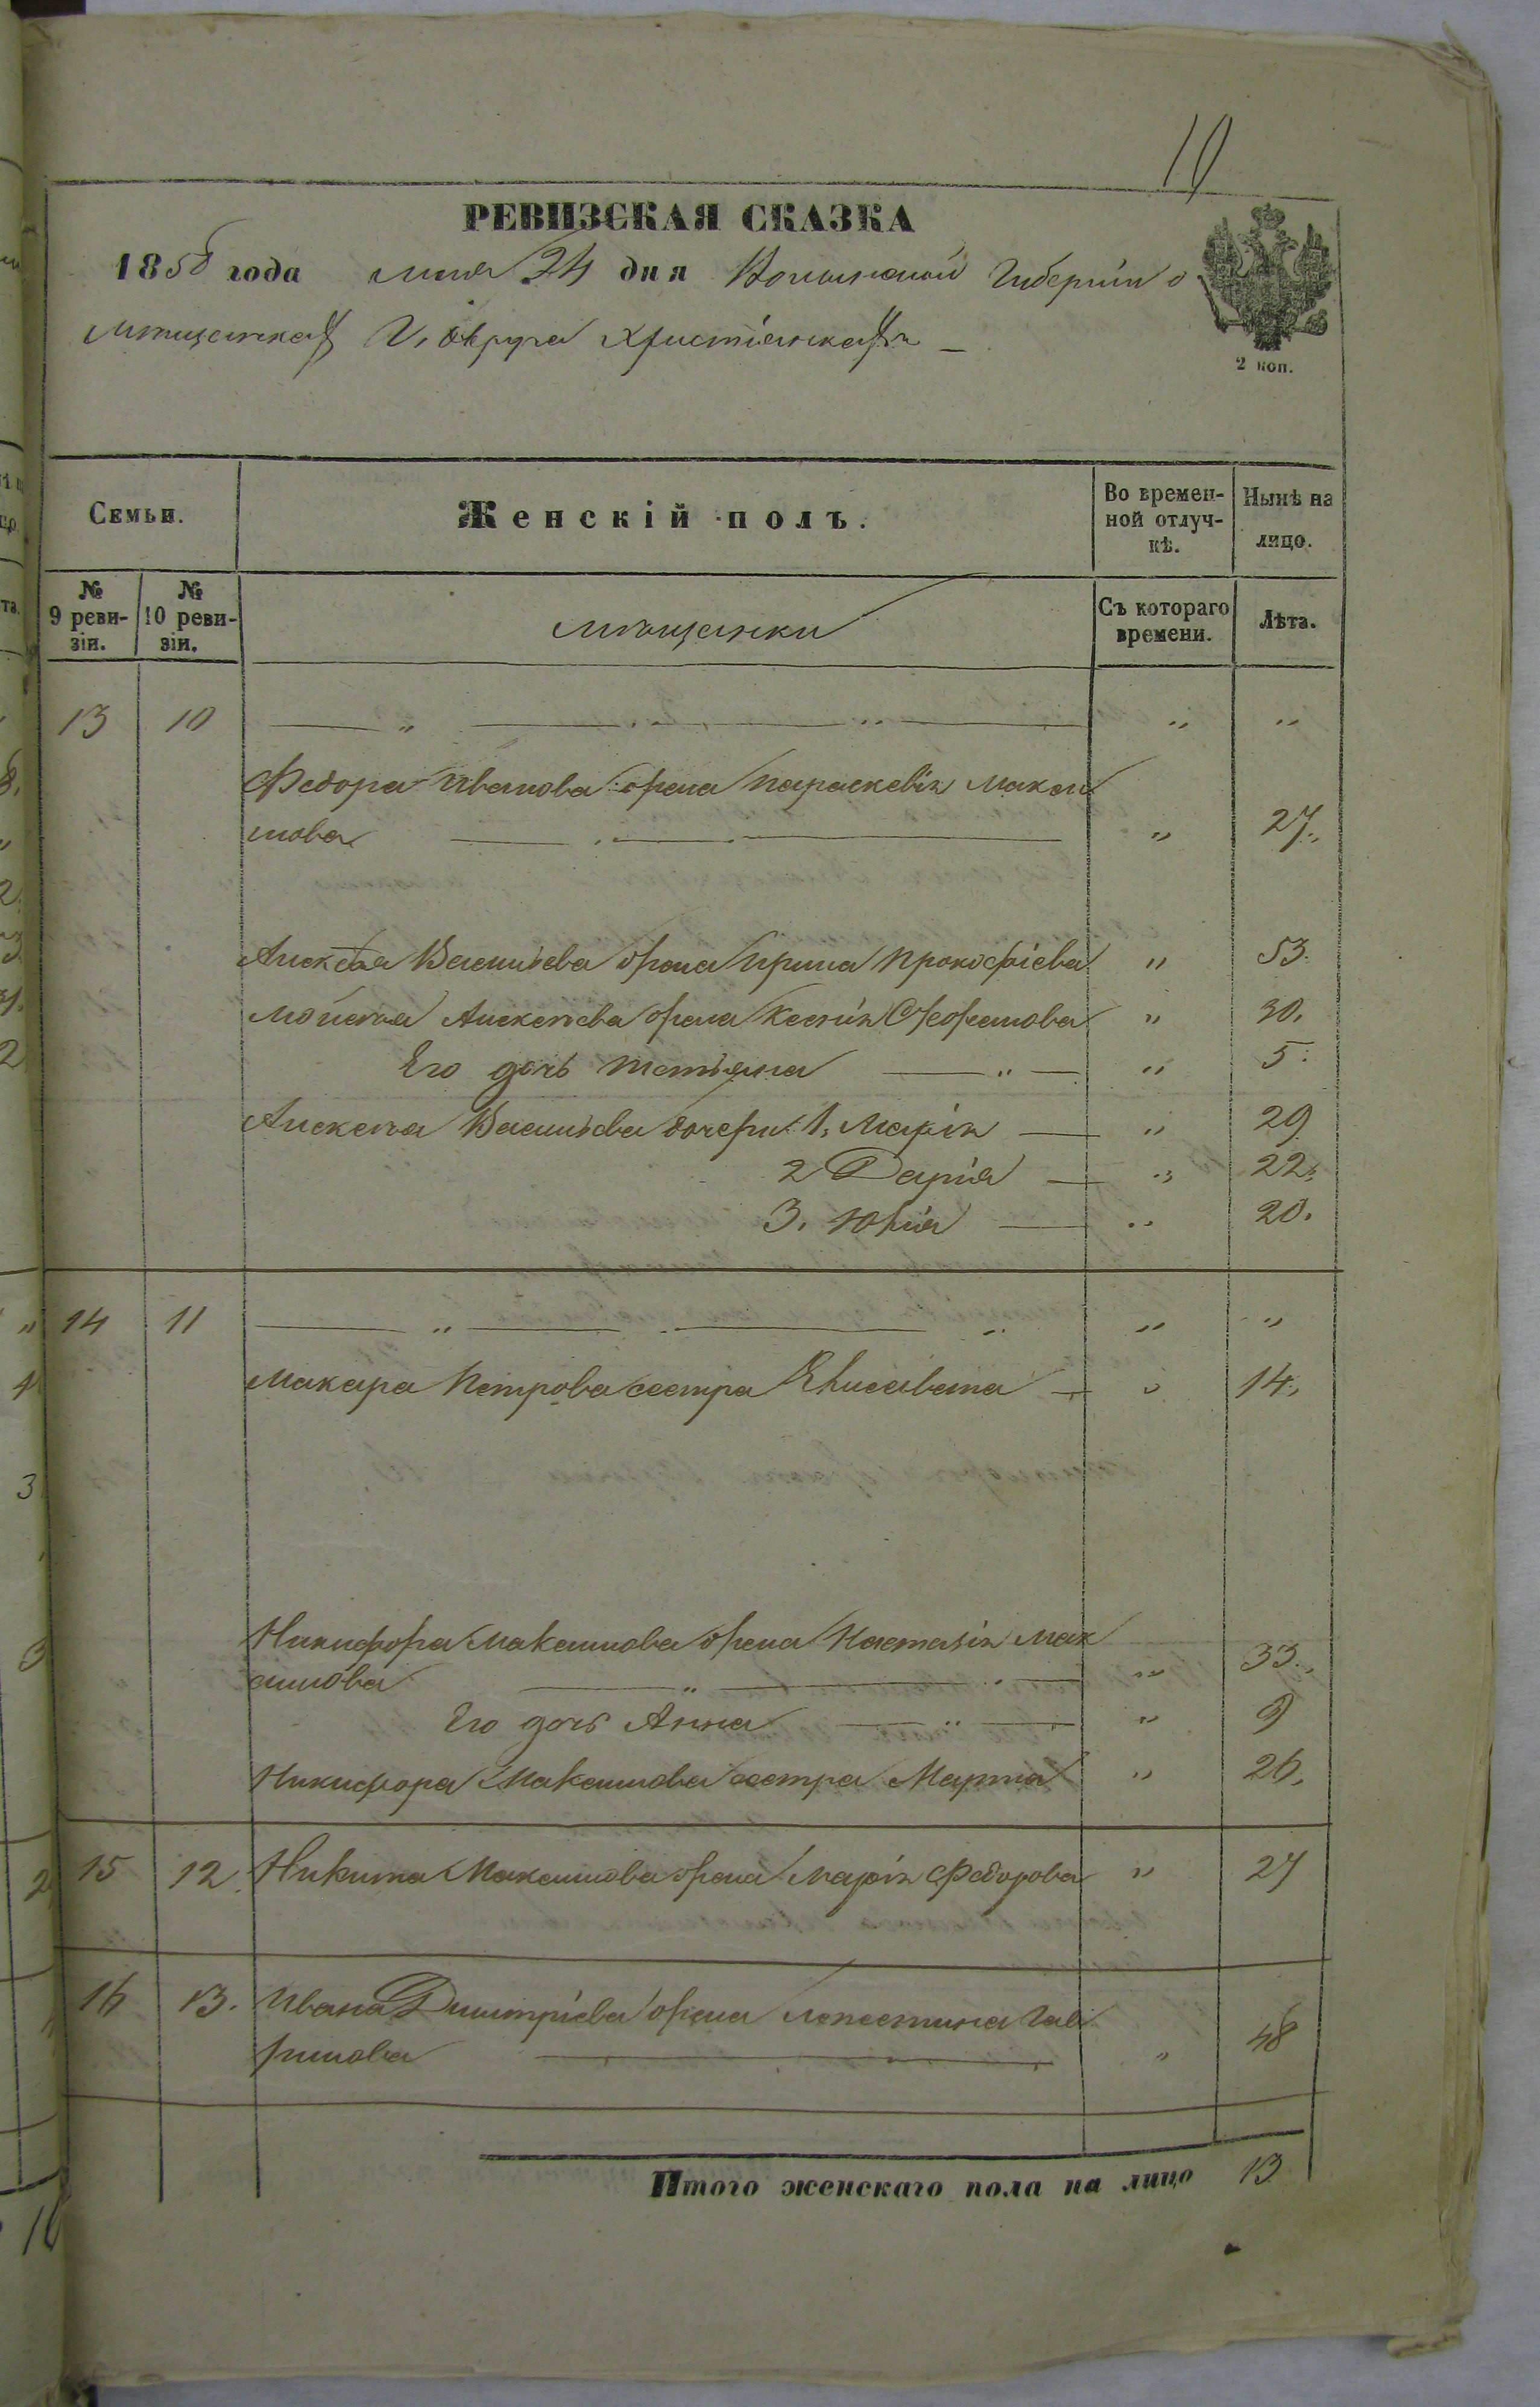 10
РЕВИЗСКАЯ СКАЗКА
1858 года мая 24 дня Волынской Губерніи о
мѣщанкахъ Г. Овруча христіанкахъ
2 коп.
Семьи.
Женскій полъ.
Во времен-
ной отлуч-
кѣ.
Нынѣ на
лицо.
№
9 реви-
зіи.
№
10 реви-
зіи.
мѣщанки
Съ котораго
времени.
Лѣта.
13 10 „ „ „ „
Федора Иванова жена Параскевія Макси
мова „ 27.
Алексѣя Васильева жена Ирина Прокофіева „ 53.
Мойсея Алексѣева жена Ксенія „ 30.
Его дочь Татьяна „ 5.
Алексѣя Васильева дочери 1. Марія „ 29
2 Дарія „ 22.
3. Юлія „ 20.
14 11 „ „ „ „
Макара Петрова сестра Елисавета „ 14.
Никифора Максимова жена Настазія Мак
симова „ 33.
Его дочь Анна „ 9
Никифора Максимова сестра Марта „ 26.
15 12. Никита Максимова жена Марія Федорова „ 27
16 13. Ивана Димитріева жена Гав
рилова „ 48
Итого женскаго пола на лицо 13